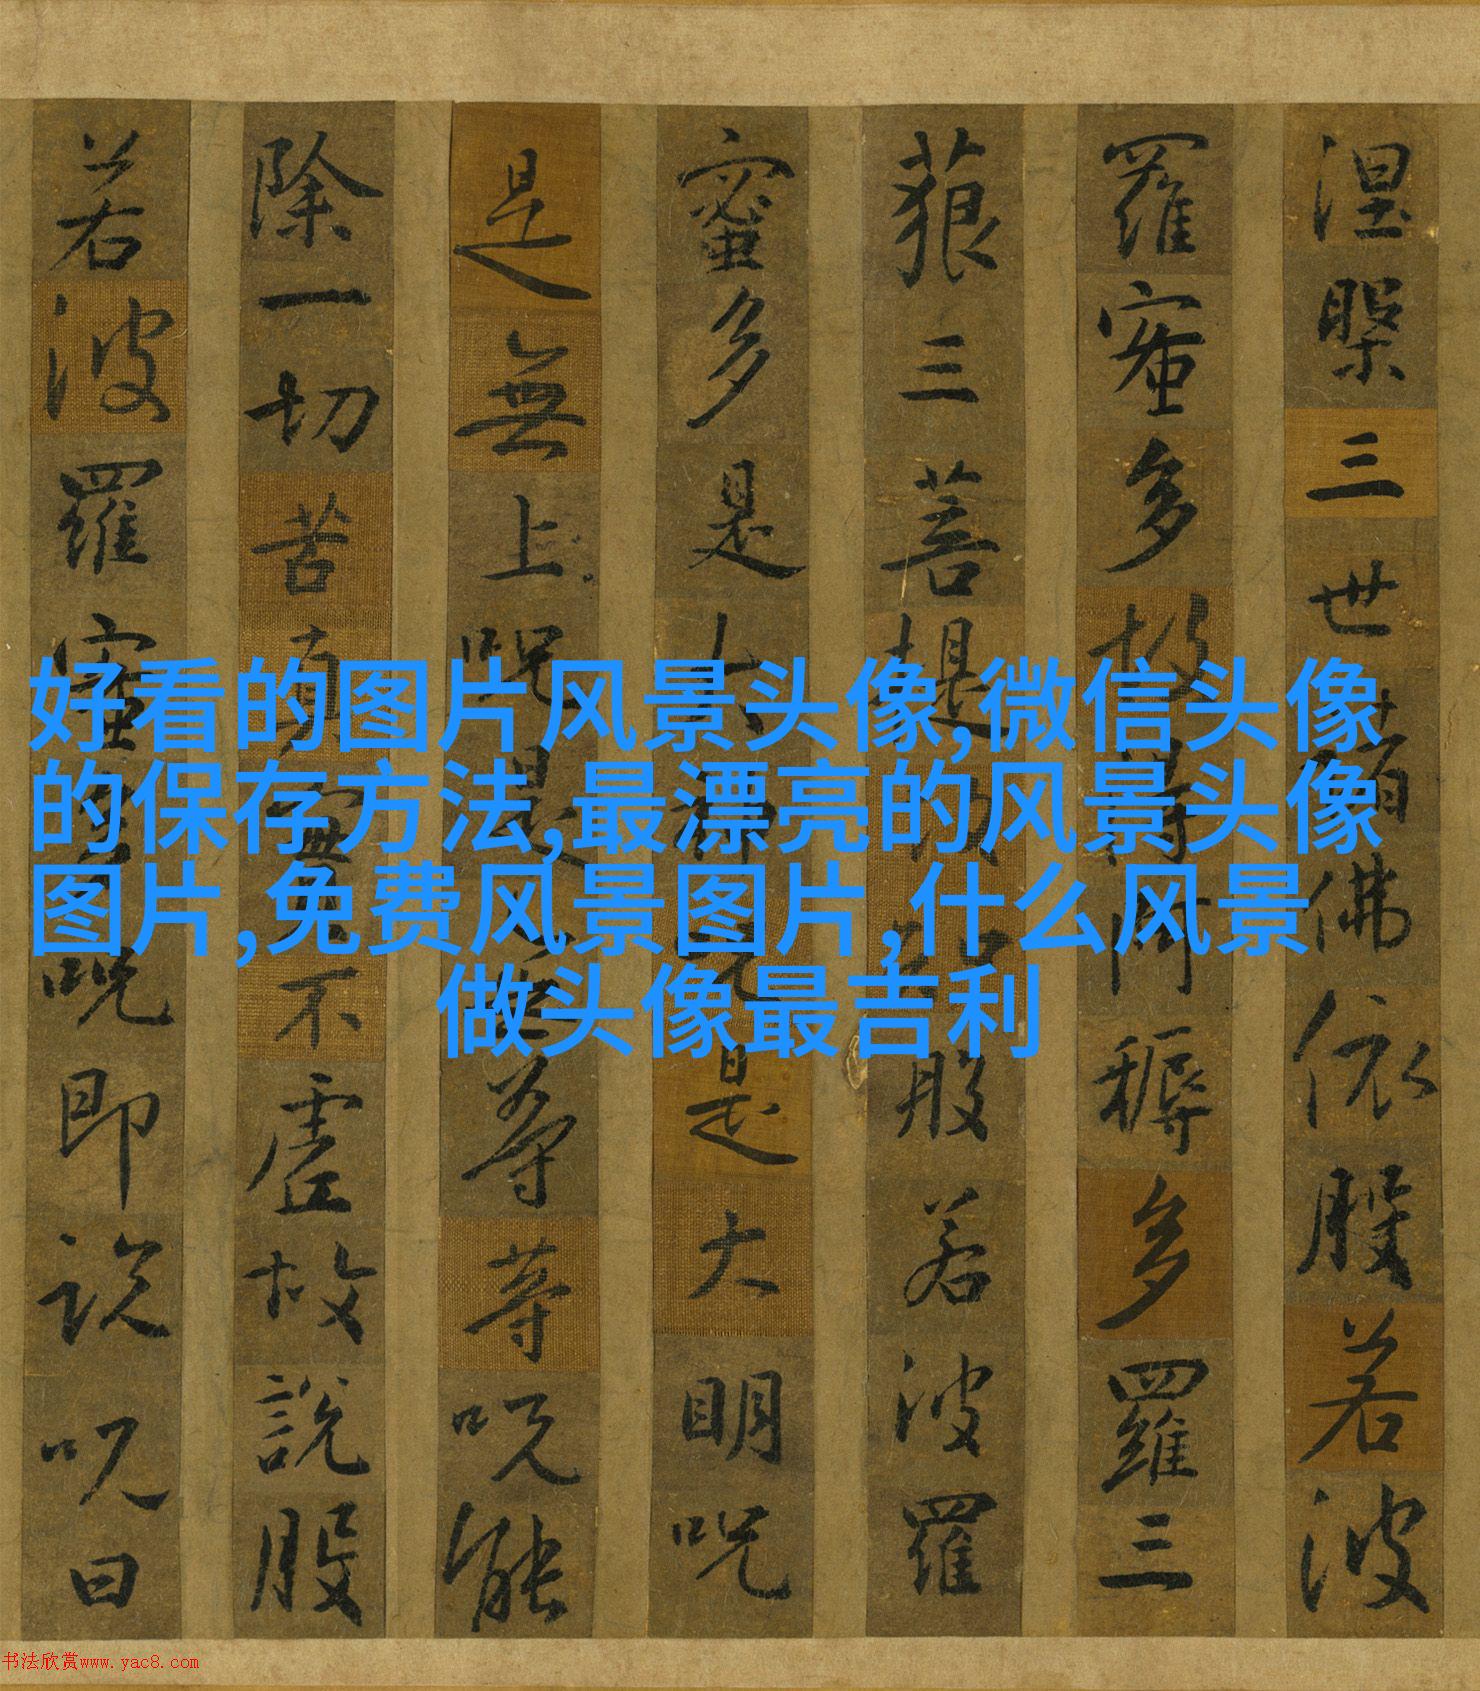 涅槃三世諸佛依般若波
羅蜜多故得阿耨多羅三
藐三菩提故知般若波羅
蜜多是大神咒是大明咒
是無上咒是無等等咒能
除一切苦真實不虛故說般
若波羅蜜多咒即說咒曰
好看的图片风景头像,微信头像
的保存方法,最漂亮的风景头像
图片,免费风景图片,什么风景
做头像最吉利
书法欣赏www.yac8.com